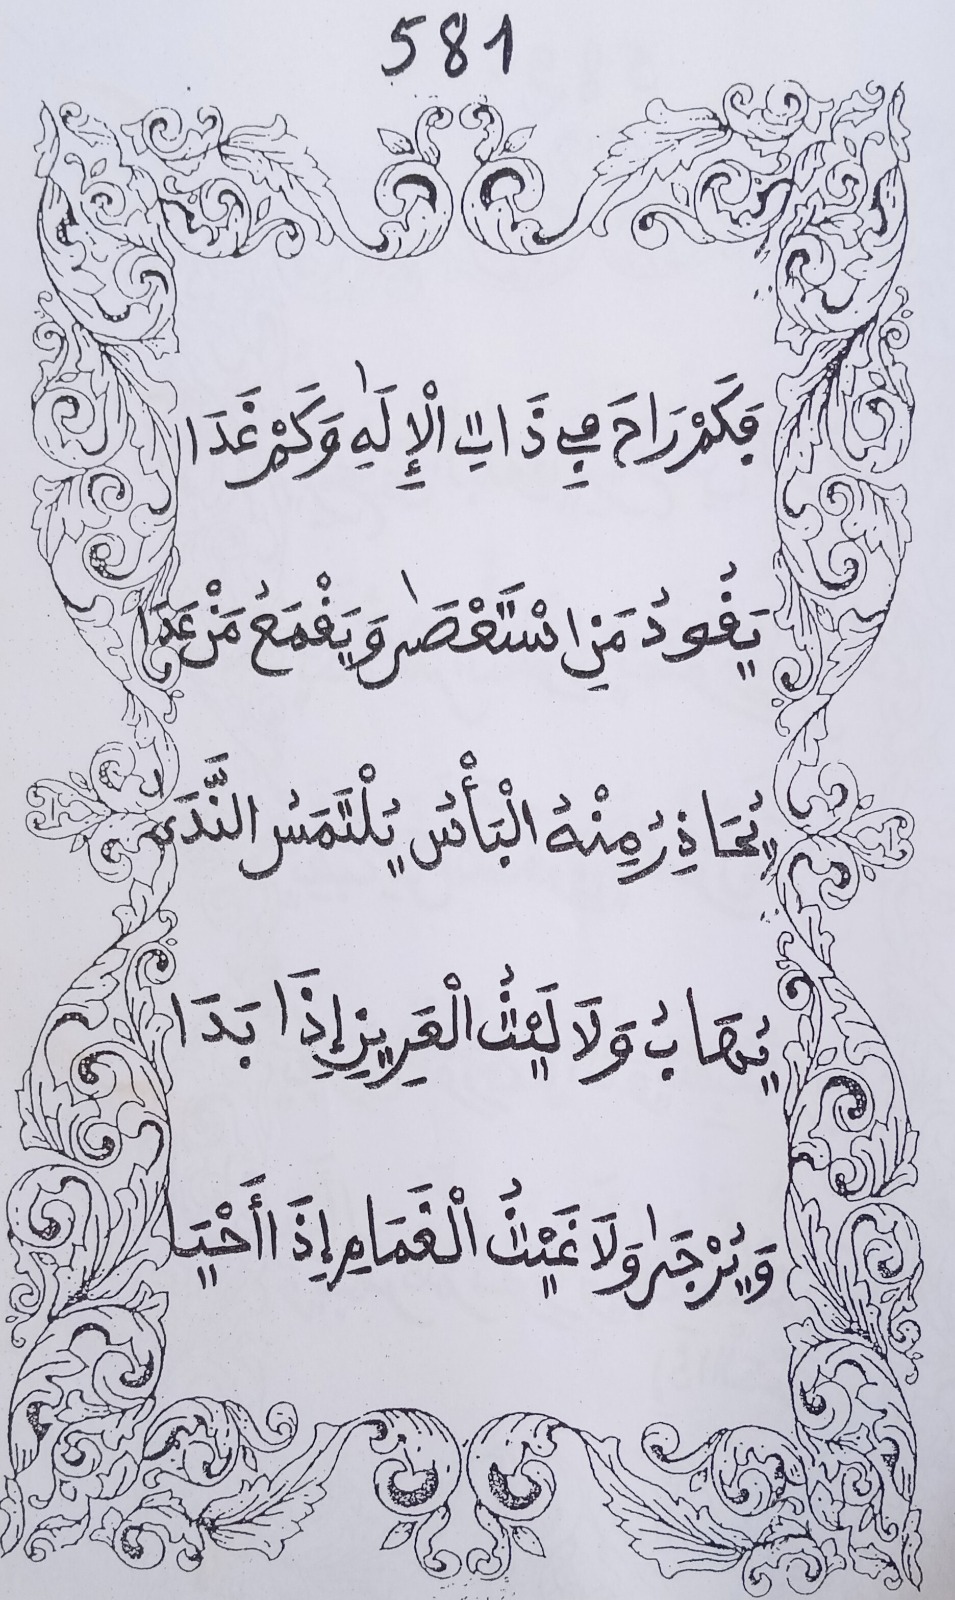 581
فَكَمْ رَاحَ فِي ذَاتِ الْإِلَٰهِ وَكَمْ غَدَا
يَقُودُ مَنِ اسْتَعْصَىٰ وَيَقْمَعُ مَنْ عَدَا
يُحَاذِرُ مِنْهُ الْبَأْسُ يُلْتَمَسُ النَّدَىٰ
يُهَابُ وَلَا لَيْثُ الْعَرِينِ إِذَا بَدَا
وَيُرْجَىٰ وَلَا غَيْثُ الْغَمَامِ إِذَا أَحْيَا